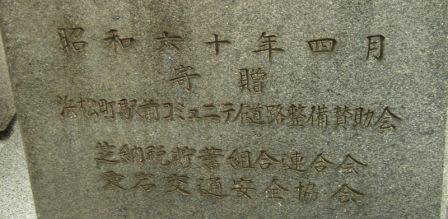 昭和六十年四月
寄贈
浜松町駅前コミュニテイ道路整備賛助会
芝納税貯蓄組合連合会
愛宕交通安全協会